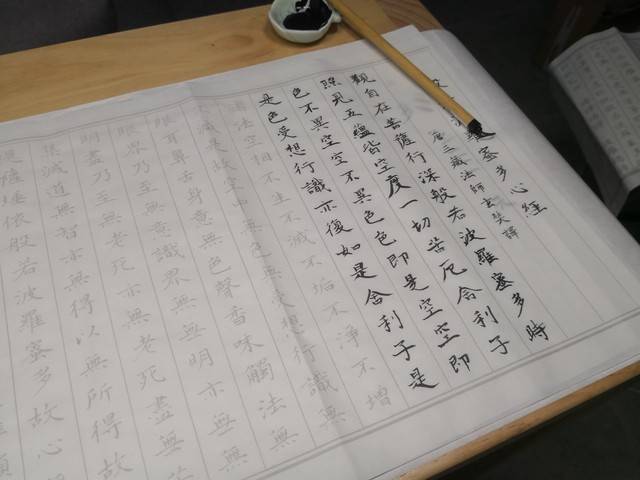 蜜多心經
唐三藏法師玄奘譯
觀自在菩薩行深般若波羅蜜多時
照見五蘊皆空度一切苦厄舍利子
色不異空空不異色色即是空空即
是色受想行識亦復如是舍利子是
諸法空相不生不滅不垢不淨不增
減是故空中無色無受想行識無
眼耳鼻舌身意無色聲香味觸法無
眼界乃至無意識界無無明亦無無
明盡乃至無老死亦無老死盡無
集滅道無智亦無得以無所得故
提薩埵依般若波羅蜜多故心